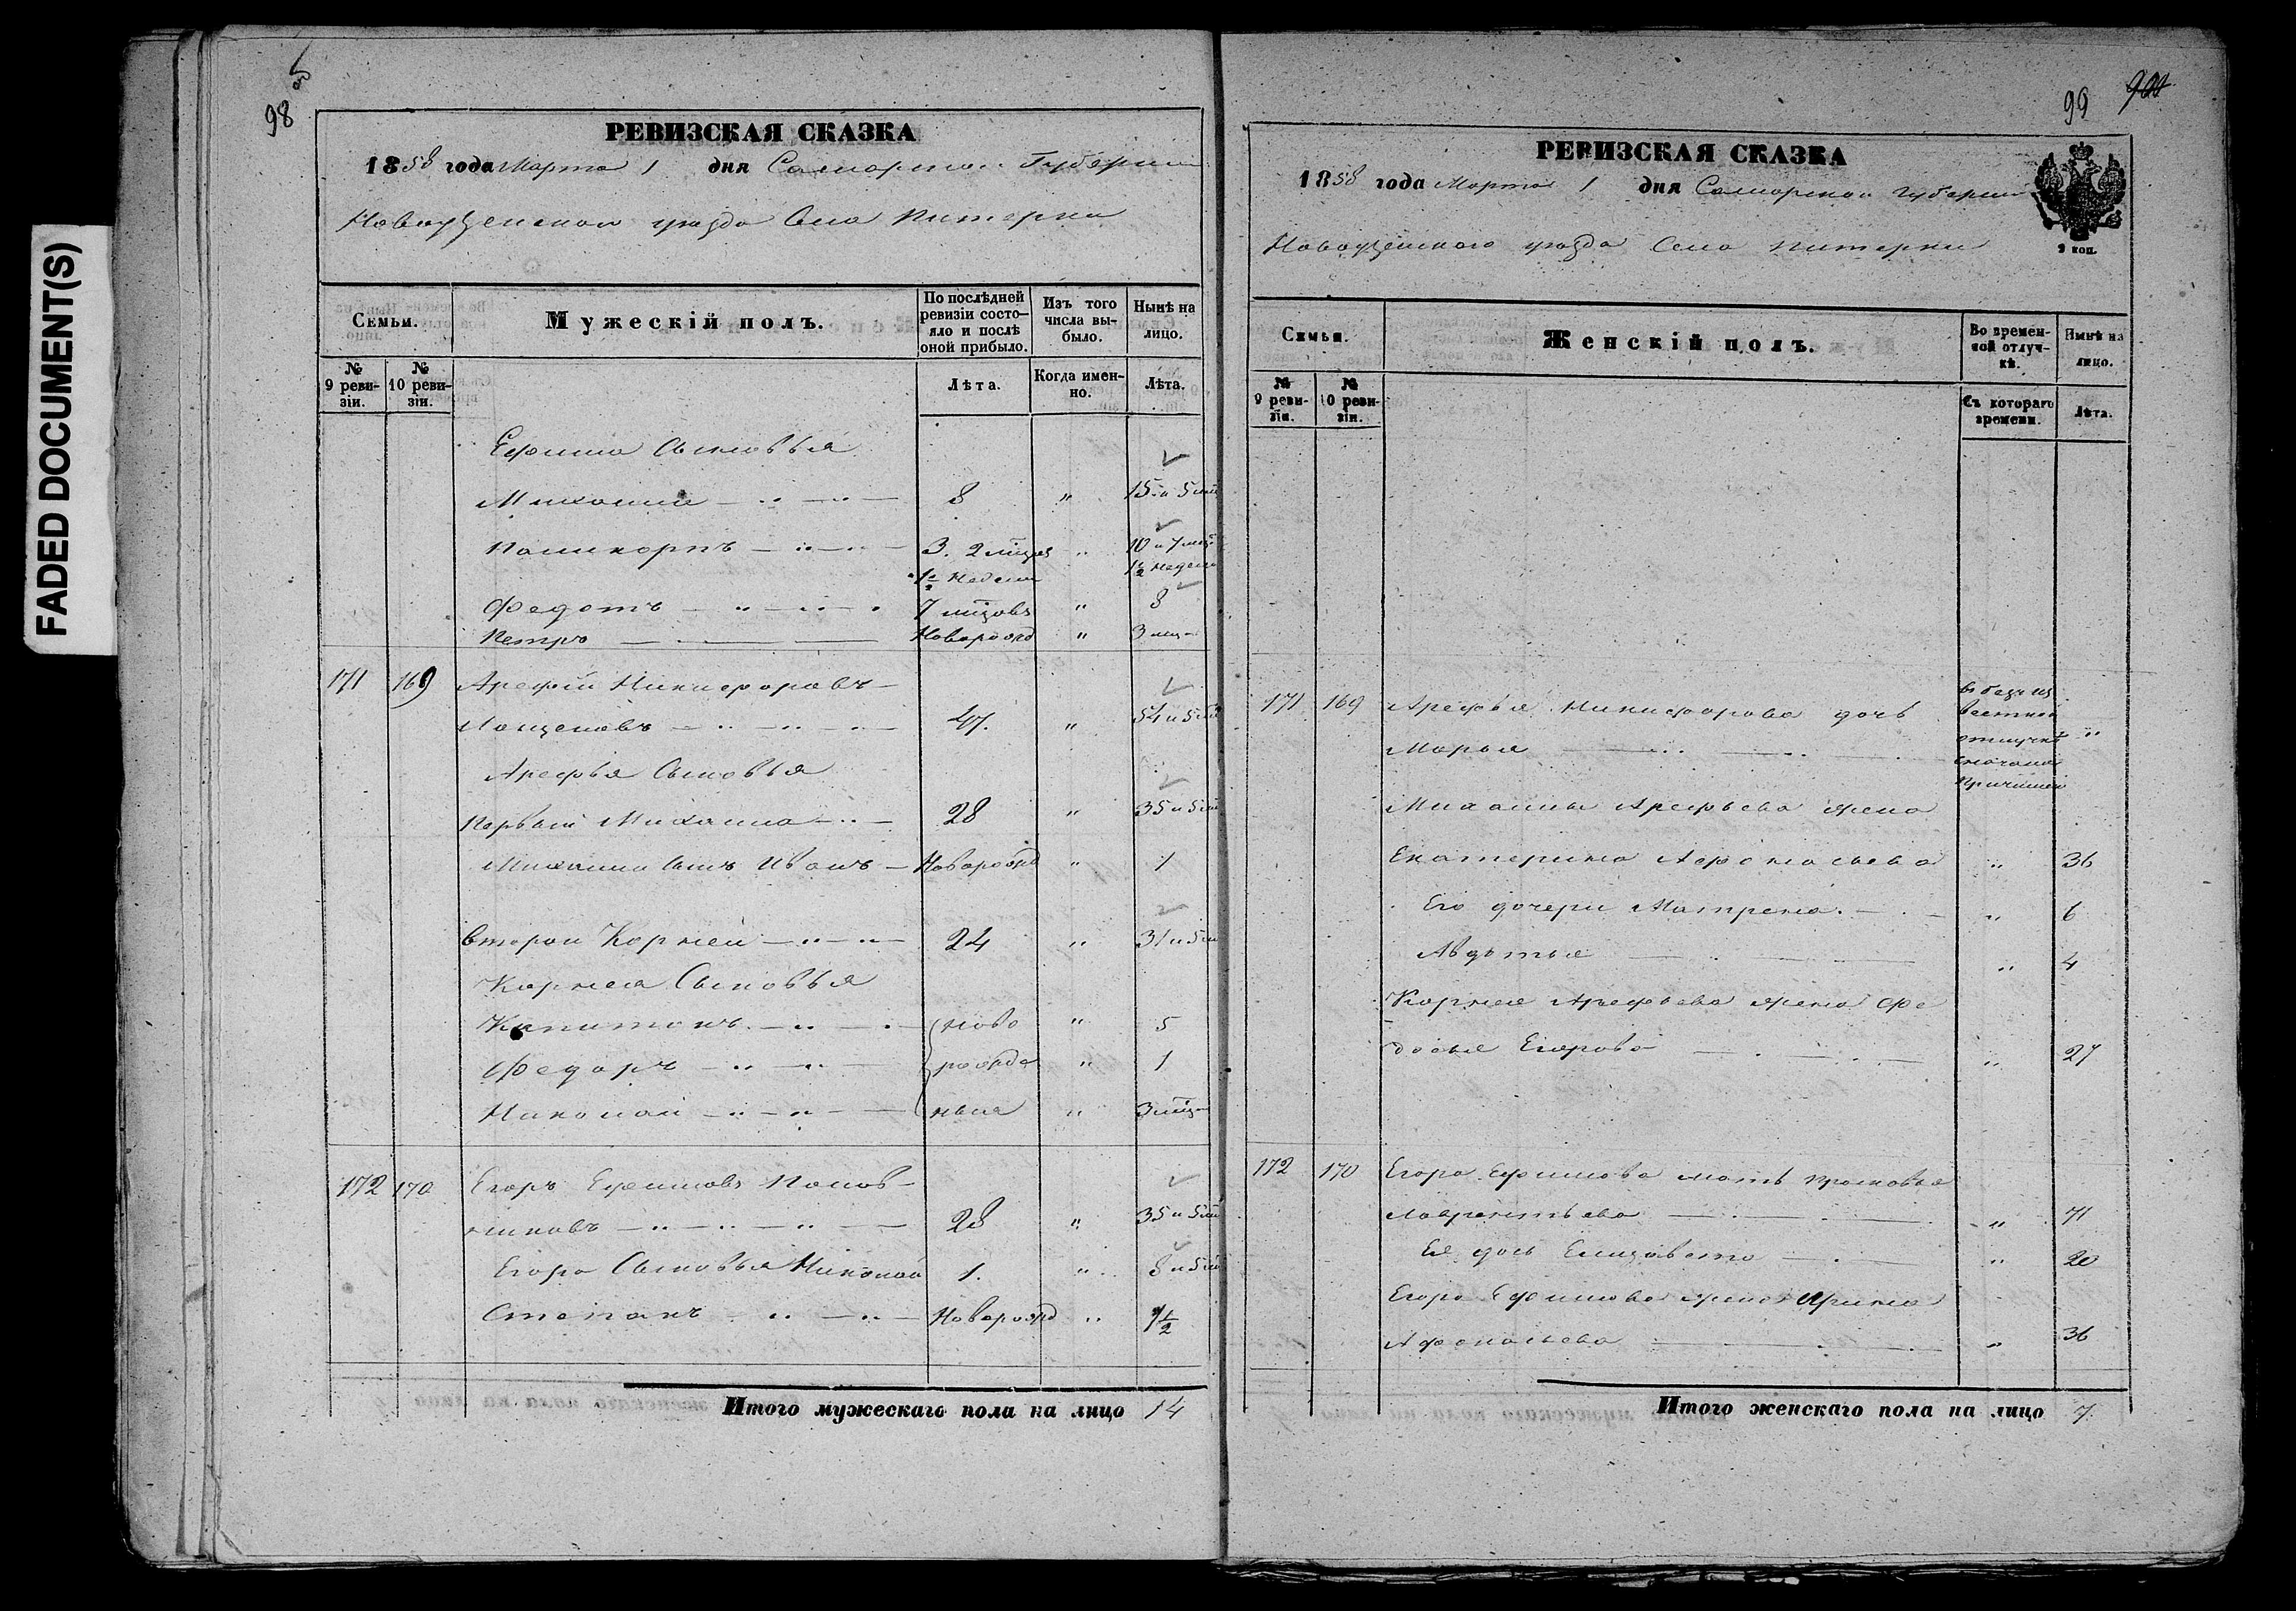 FADED DOCUMENT(S)
98
РЕВИЗСКАЯ СКАЗКА
1858 года Марта 1 дня Самарской Губернии
Новоузенскаго уезда Села Питерки
Семьи.
Мужескій полъ.
По послѣдней ревизіи состояло и послѣ оной прибыло.
Изъ того числа выбыло.
Нынѣ на лицо.
№ 9 ревизіи.
№ 10 ревизіи.
Лѣта.
Когда именно.
Лѣта.
Ефима Сыновья
Михаила 8 " 15 и 5 мѣс
Поликарпъ 3. 2 мѣсец " 10 и 7 мѣс
1/2 недели 1/2 недели
Федотъ 7 мѣсцовъ " 8
Петръ Новорожд " 3 мѣс
171 169 Арефий Никифоровъ
Лощеновъ 47. " 54 и 5 мѣс
Арефья Сыновья
Первый Михаила 28 " 35 и 5 мѣс
Михаила Сынъ Иванъ Новорожд " 1
Второй Корней 24 " 31 и 5 м
Корнея Сыновья
Капитонъ ново " 5
Федоръ рожде " 1
Николай ныя " 3 мѣс
172 170 Егоръ Ефимовъ Полов
никовъ 28 " 35 и 5 мѣс
Егора Сыновья Николай 1. " 8 и 5 мѣс
Степанъ Новорожд " 1/2
Итого мужескаго пола на лицо 14
99
РЕВИЗСКАЯ СКАЗКА
1858 года Марта 1 дня Самарской Губернии
Новоузенскаго уезда Села Питерки
2 коп.
Семьи.
Женскій полъ.
Во временной отлучкѣ.
Нынѣ на лицо.
№ 9 ревизіи.
№ 10 ревизіи.
Съ котораго времени.
Лѣта.
171 169 Арефья Никифорова дочь
Марья "
в безъиз
вестной
отлучке
Михаилы Арефьева жена
Екатерина Афонасьева " 36
Его дочери Матрена " 6
Авдотья " 4
Корнея Арефьева жена Фе
досья Егорова " 27
172 170 Егора Ефимова мать Прасковья
Лаврентьева " 71
Её дочь Елизавета " 20
Егора Ефимова жена Ирина
Афонасьева " 36
Итого женскаго пола на лицо 7